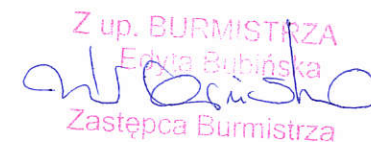 Z up. BURMISTRZA
Edyta Bubińska
Zastępca Burmistrza